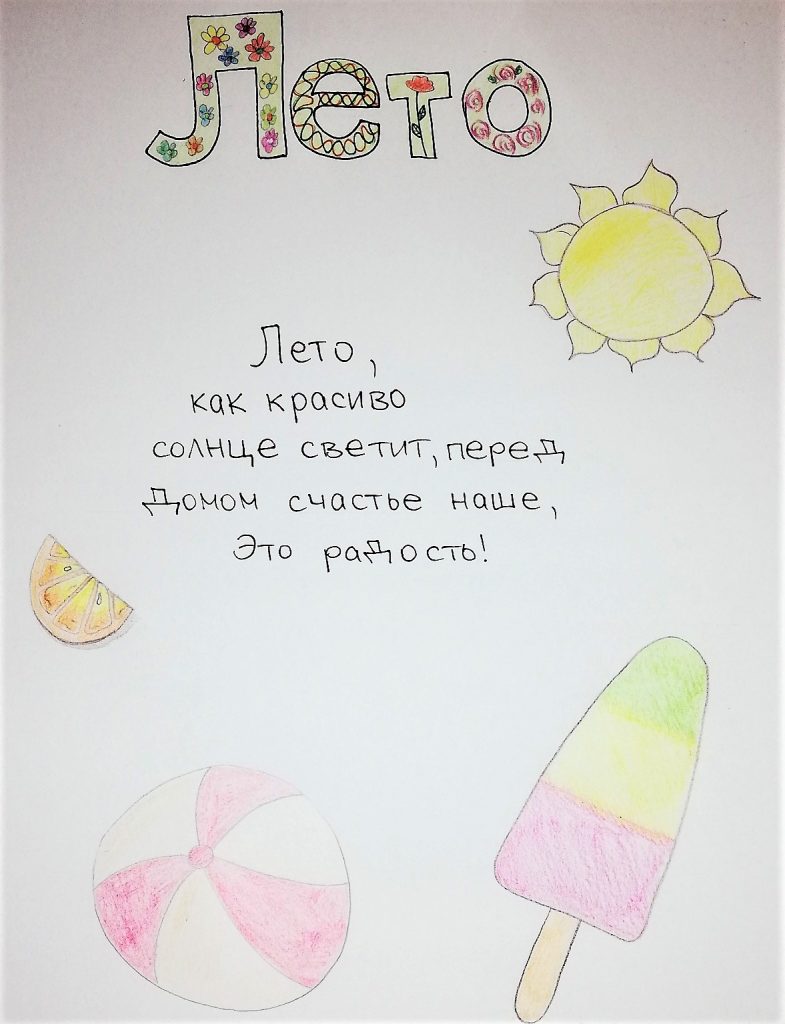 Лето
Лето,
как красиво
солнце светит, перед
Домом счастье наше,
Это радость!